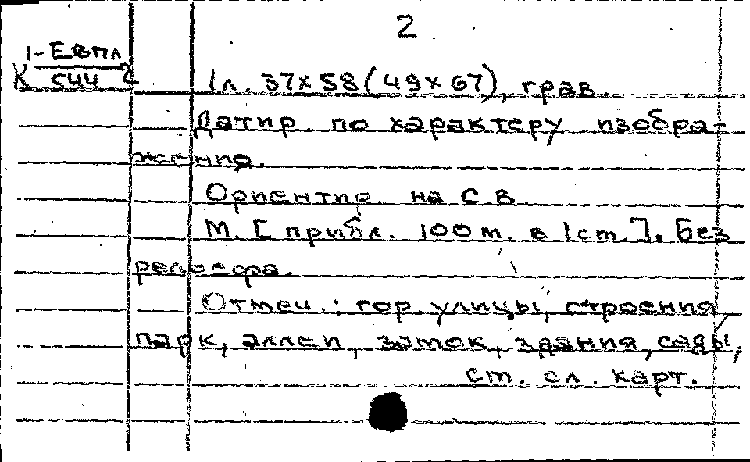 2
1-Евпл
К 544 2
1л. 37×58 (49×67), грав.
Датир. по характеру изобра-
жения.
Ориентир. на С.В.
М. [прибл. 100 м. в 1 ст.]. Без
рельефа.
Отмеч.: гор. улицы, строения
парк, аллеи, замок, здания, сады,
ст. сл. карт.